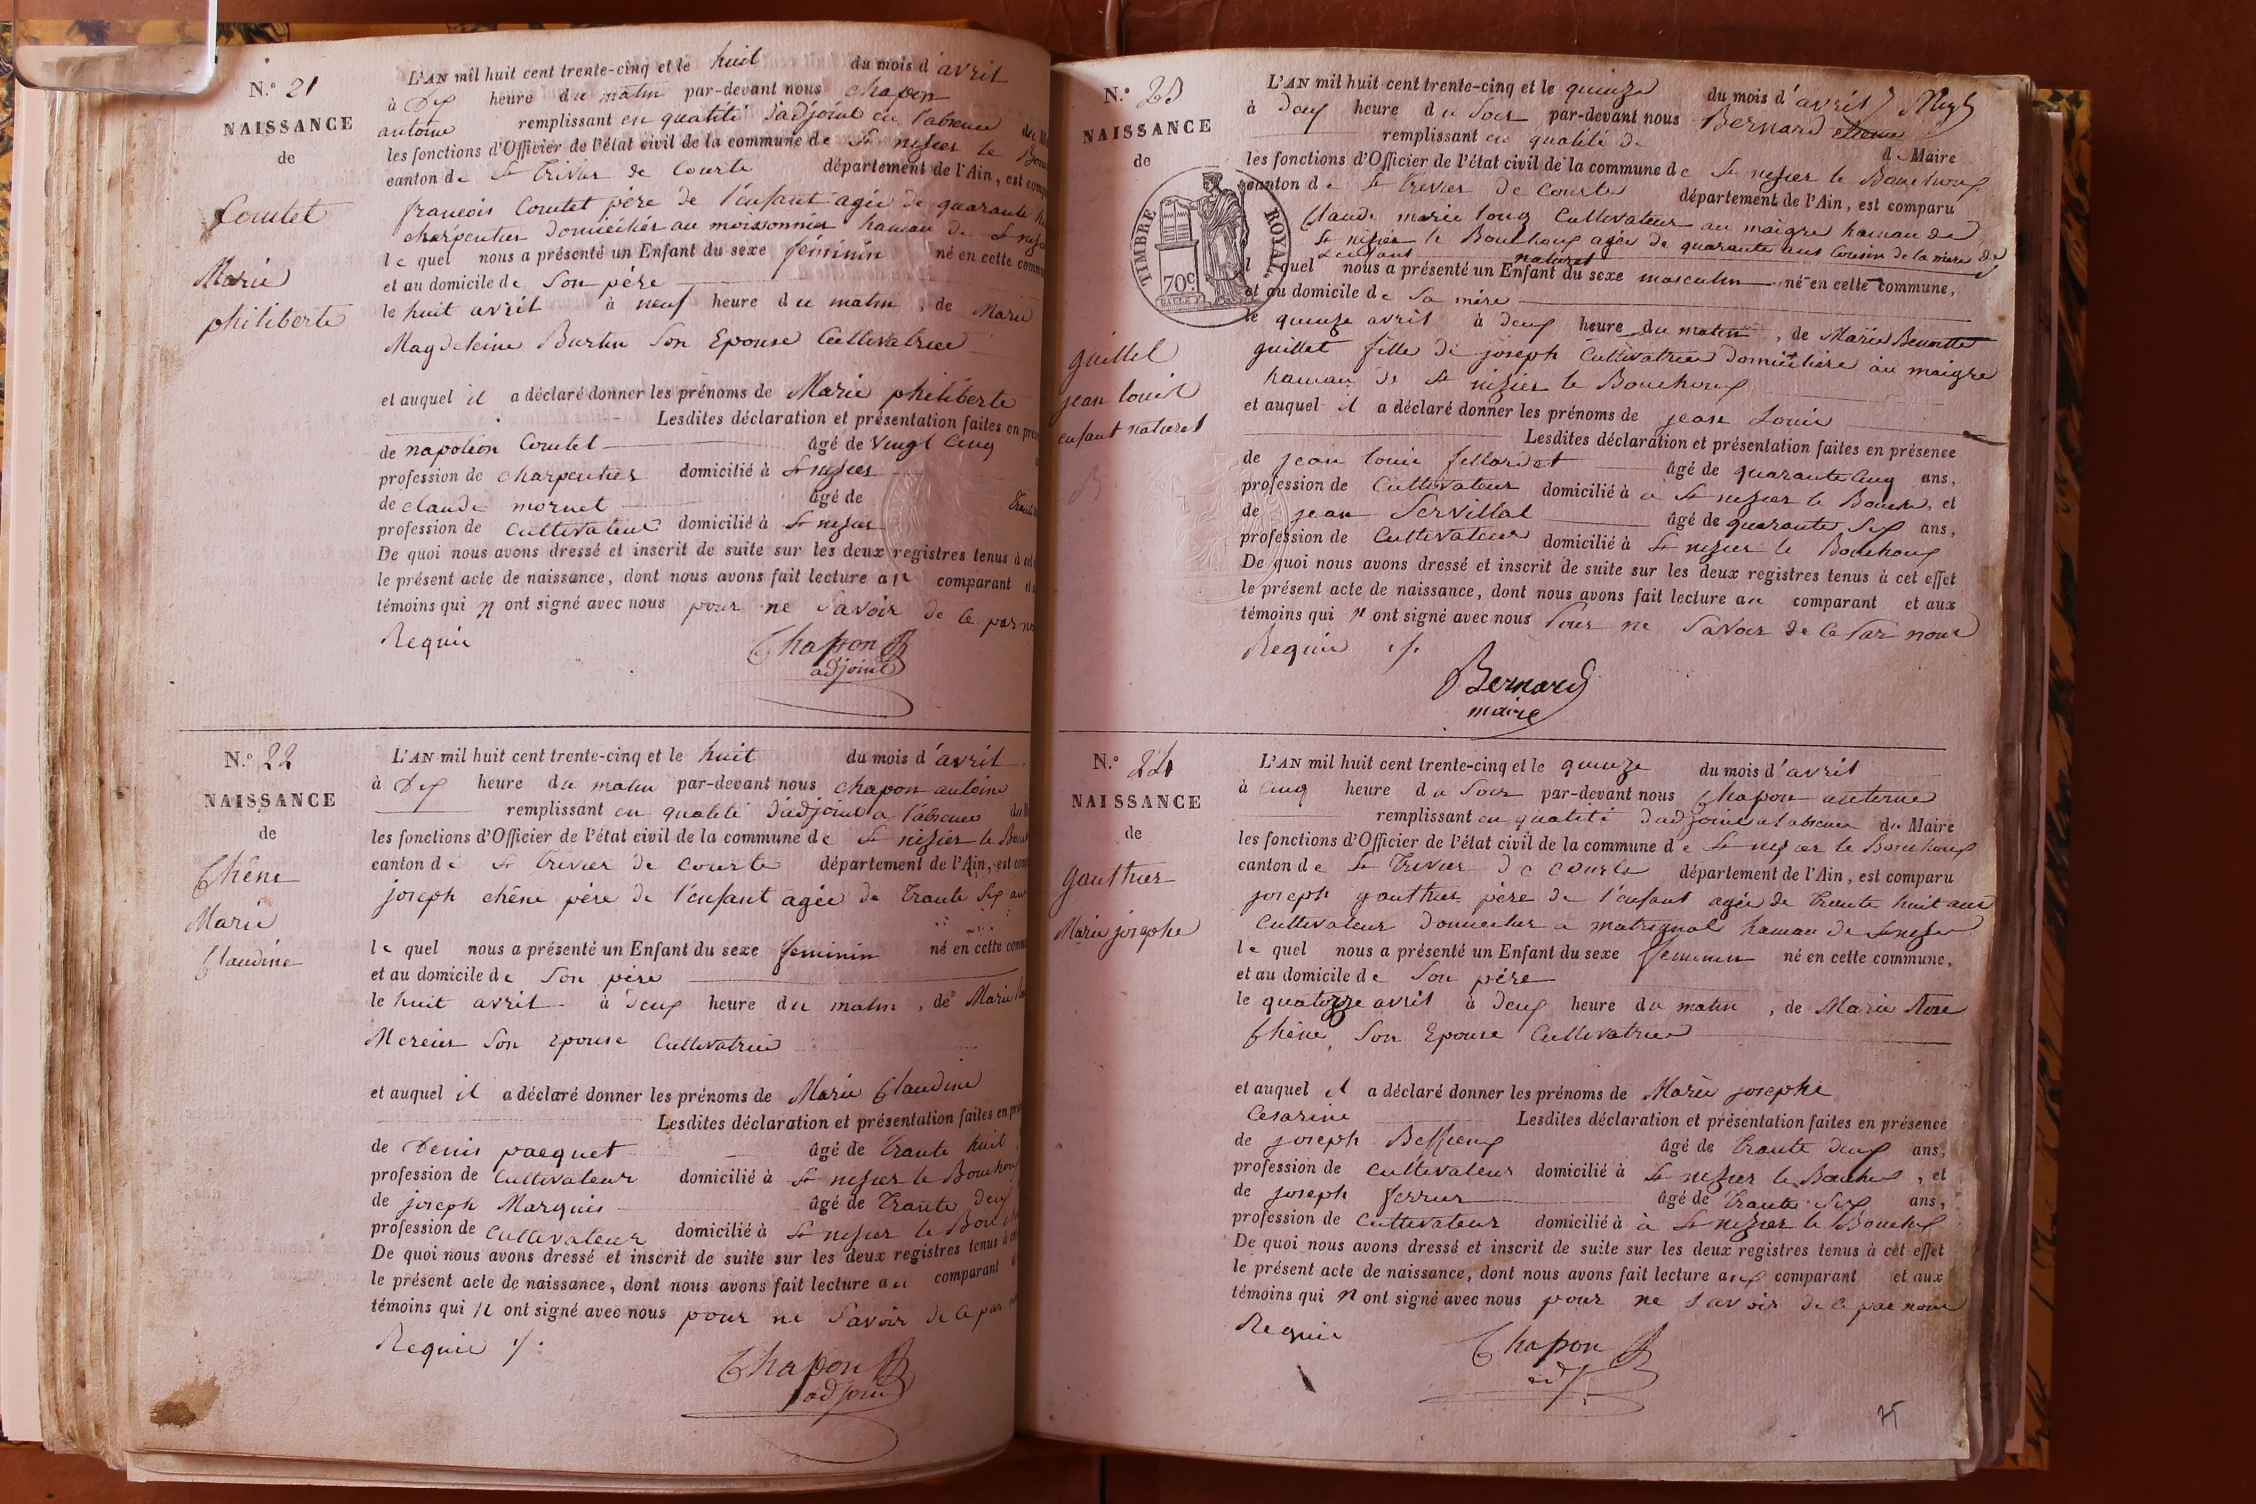 N.º 21
NAISSANCE
de
Comtet
Marie
philiberte
L'AN mil huit cent trente-cinq et le huit du mois d'avril
à Dix heure du matin par-devant nous chapon
antoine remplissant en qualité d'adjoint en l'absence du
les fonctions d'Officier de l'état civil de la commune de St nizier le
canton de St Trivier de Courte département de l'Ain, est
françois Comtet père de l'enfant agée de quarante
charpentier domiciliér au moissonnier hamau de St
le quel nous a présenté un Enfant du sexe féminin né en cette
et au domicile de Son père
le huit avril à neuf heure du matin, de Marie
Magdeleine Burtin Son Epouse Cultivatrice
et auquel il a déclaré donner les prénoms de Marie philiberte
Lesdites déclaration et présentation faites en
de napoléon Comtet âgé de Vingt Cinq
profession de charpentier domicilié à St nizier
de claude mornet âgé de
profession de Cultivateur domicilié à St nizier
De quoi nous avons dressé et inscrit de suite sur les deux registres tenus à
le présent acte de naissance, dont nous avons fait lecture au comparant
témoins qui n ont signé avec nous pour ne Savoir de Ce par
Requis
Chapon
adjoint
N.º 22
NAISSANCE
de
Chêne
Marie
Claudine
L'AN mil huit cent trente-cinq et le huit du mois d'avril
à Dix heure du matin par-devant nous chapon antoine
remplissant en qualité d'adjoint a l'absence du
les fonctions d'Officier de l'état civil de la commune de St nizier le
canton de St Trivier de Courte département de l'Ain, est
joseph chêne père de l'enfant agée de Trante Six
le quel nous a présenté un Enfant du sexe feminin né en cette
et au domicile de Son père
le huit avril à deux heure du matin, de Marie
Mercier Son Epouse Cultivatrice
et auquel il a déclaré donner les prénoms de Marie Claudine
Lesdites déclaration et présentation faites en
de Denis pacquet âgé de Trante huit
profession de Cultivateur domicilié à St nizier le Bouchoux
de joseph Marquis âgé de Trante deux
profession de Cultivateur domicilié à St nizier le
De quoi nous avons dressé et inscrit de suite sur les deux registres tenus à
le présent acte de naissance, dont nous avons fait lecture au comparant
témoins qui n ont signé avec nous pour ne Savoir de Ce par
Requis
Chapon
adjoint
N.º 23
NAISSANCE
de
TIMBRE ROYAL
70c.
guillet
jean louis
enfant naturel
L'AN mil huit cent trente-cinq et le quinze du mois d'avril
à Deux heure du Soir par-devant nous Bernard
remplissant en qualité de de Maire
les fonctions d'Officier de l'état civil de la commune de St nizier le Bouchoux
canton de St Trivier de Courte département de l'Ain, est comparu
Claude marie long Cultivateur au maigre hamau de
St nizier le Bouchoux agée de quarante ans Cousin de la mère de
L'enfant naturel
l quel nous a présenté un Enfant du sexe masculin né en cette commune,
et au domicile de Sa mère
le quinze avril à deux heure du matin, de Marie Benoitte
guillet fille de joseph Cultivatrice domicilière au maigre
hamau de St nizier le Bouchoux
et auquel il a déclaré donner les prénoms de jean Louis
Lesdites déclaration et présentation faites en présence
de jean louis fillardet âgé de quarante Cinq ans,
profession de Cultivateur domicilié à a St nizier le Bouch, et
de jean Servillat âgé de quarante Six ans,
profession de Cultivateur domicilié à St nizier le Bouchoux
De quoi nous avons dressé et inscrit de suite sur les deux registres tenus à cet effet
le présent acte de naissance, dont nous avons fait lecture au comparant et aux
témoins qui n ont signé avec nous Pour ne Savoir de Ce Par nous
Requis
Bernard
maire
N.º 24
NAISSANCE
de
gauthier
Marie josephe
L'AN mil huit cent trente-cinq et le quinze du mois d'avril
à Cinq heure du Soir par-devant nous Chapon antoine
remplissant en qualité d'adjoint a l'absence du Maire
les fonctions d'Officier de l'état civil de la commune de St nizier le Bouchoux
canton de St Trivier de Courte département de l'Ain, est comparu
joseph gauthier père de l'enfant agée de Trante huit ans
Cultivateur domicilier a matrignat hamau de St nizier
le quel nous a présenté un Enfant du sexe feminin né en cette commune,
et au domicile de Son père
le quatorze avril à deux heure du matin, de Marie Rose
Chêne, Son Epouse Cultivatrice
et auquel il a déclaré donner les prénoms de Marie josephe
Cesarine Lesdites déclaration et présentation faites en présence
de joseph âgé de Trante deux ans,
profession de cultivateur domicilié à St nizier le Bouchoux, et
de joseph ferrier âgé de Trante Six ans,
profession de Cultivateur domicilié à à St nizier le Bouchoux
De quoi nous avons dressé et inscrit de suite sur les deux registres tenus à cet effet
le présent acte de naissance, dont nous avons fait lecture aux comparant et aux
témoins qui n ont signé avec nous pour ne savoir de Ce par nous
Requis
Chapon
adj